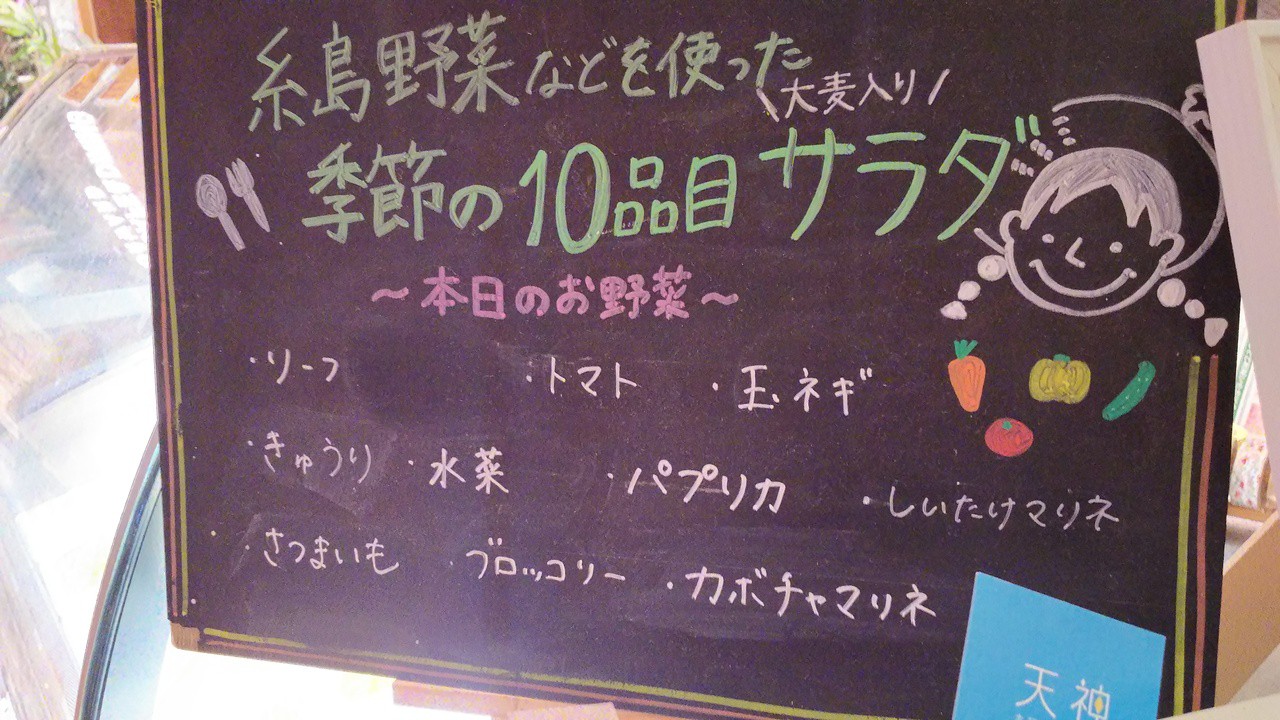 糸島野菜などを使った
\大麦入り/
季節の10品目サラダ
～本日のお野菜～
・リーフ ・トマト ・玉ネギ
・きゅうり ・水菜 ・パプリカ ・しいたけマリネ
・さつまいも ・ブロッコリー ・カボチャマリネ
天神